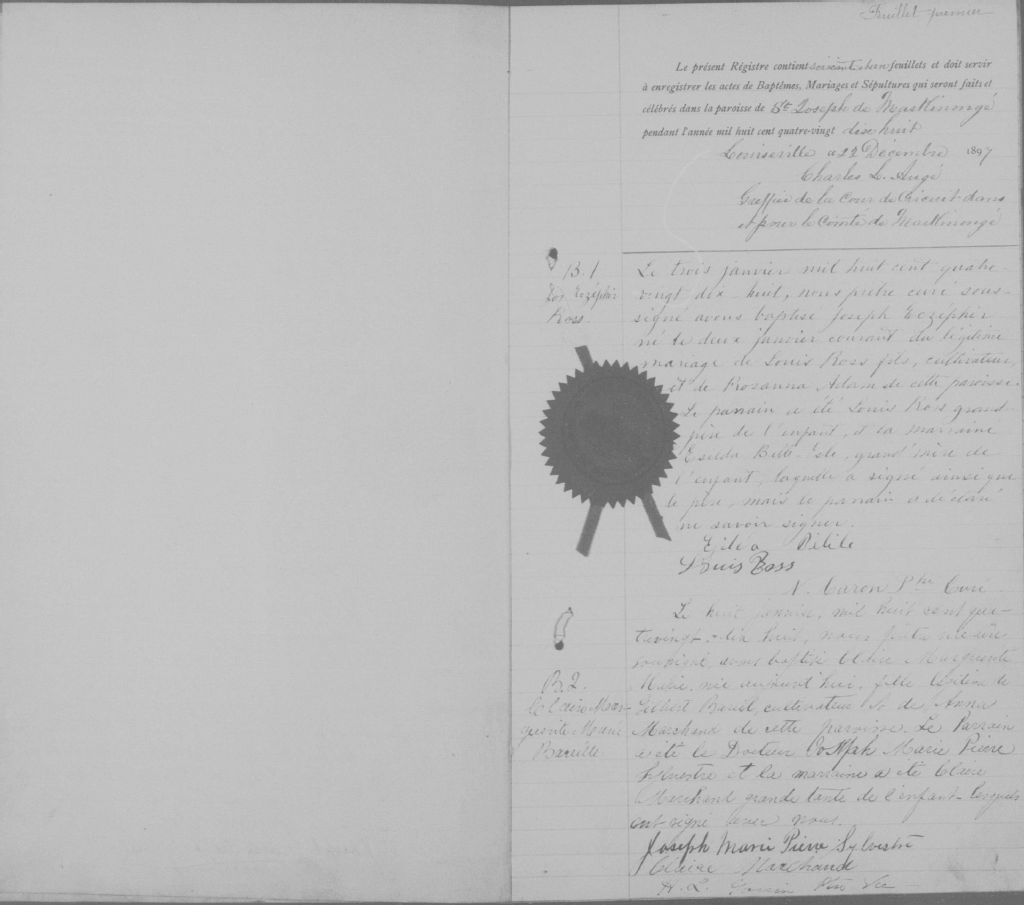 Feuillet premier
Le présent Régistre contient soixante feuillets et doit servir
à enregistrer les actes de Baptêmes, Mariages et Sépultures qui seront faits et
célébrés dans la paroisse de St Joseph de Maskinongé
pendant l'année mil huit cent quatre-vingt dix huit
Louiseville ce 22 Décembre 1897
Charles L. Augé
Greffier de la Cour de Circuit dans
et pour le Comté de Maskinongé
B. 1
Jos. Ezéphir
Ross.
Le trois janvier mil huit cent quatre-
vingt dix-huit, nous prêtre curé sous-
signé avons baptisé Joseph Ezéphir
né le deux janvier courant du légitime
mariage de Louis Ross fils, cultivateur,
et de Rosanna Adam de cette paroisse.
Le parrain a été Louis Ross grand-
père de l'enfant, et la marraine
grand'mère de
l'enfant, laquelle a signé ainsi que
le père, mais le parrain a déclaré
ne savoir signer.
Louis Ross
N. Caron Ptre Curé
B. 2.
Claire Mar-
guerite Marie
Bareille
Le huit janvier, mil huit cent qua-
trevingt-dix huit, nous prêtre vicaire
soussigné avons baptisé Claire Marguerite
Marie, née aujourd'hui, fille légitime de
Gilbert Baril, cultivateur & de Anna
Marchand de cette paroisse. Le Parrain
a été le Docteur Joseph Marie Pierre
Sylvestre et la marraine a été Claire
Marchand grande tante de l'enfant lesquels
ont signé avec nous.
Joseph Marie Pierre Sylvestre
Claire Marchand
Ptre Vic